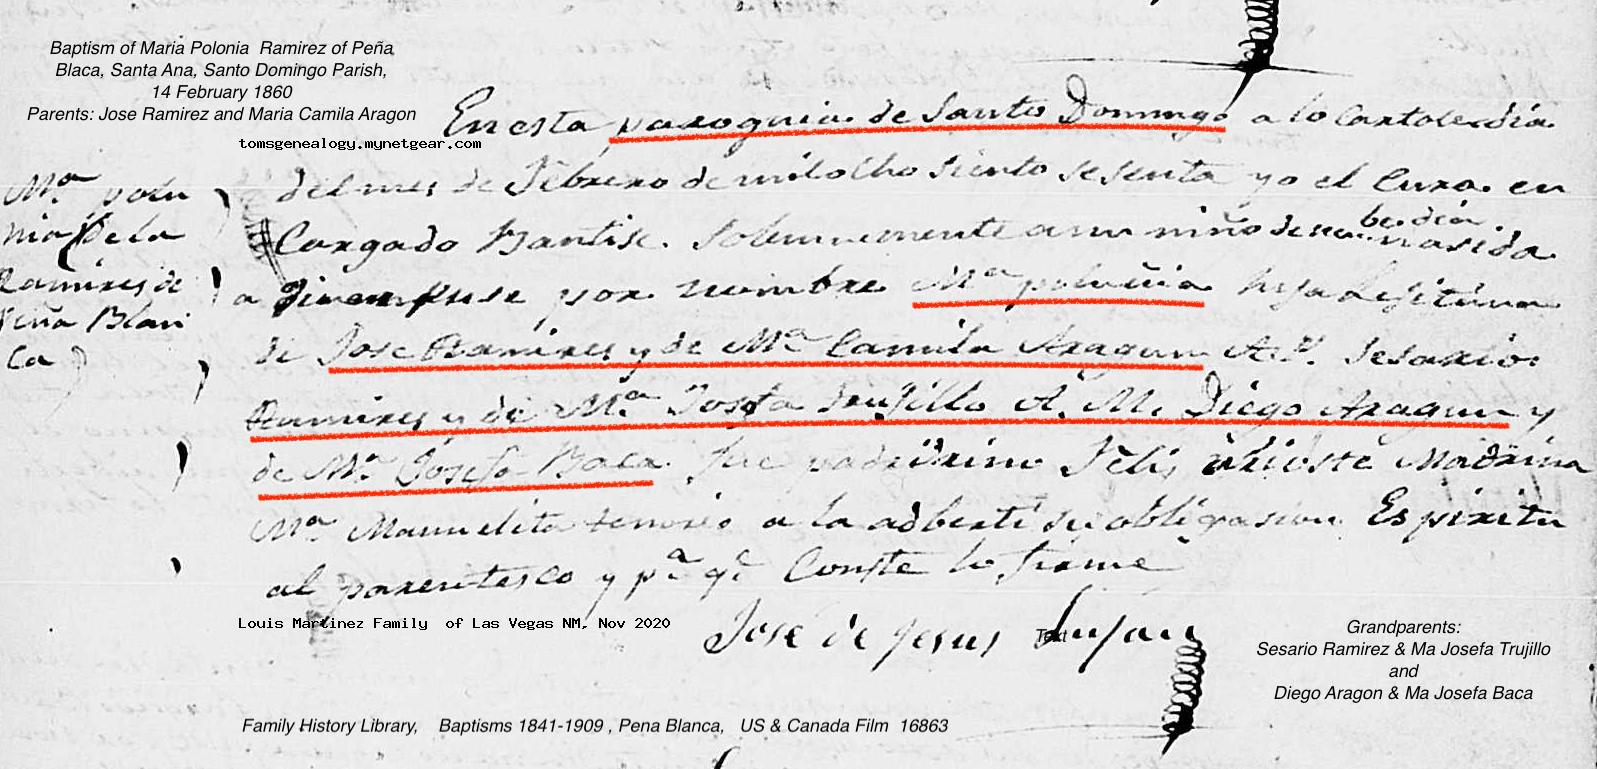 Baptism of Maria Polonia Ramirez of Peña
Blaca, Santa Ana, Santo Domingo Parish,
14 February 1860
Parents: Jose Ramirez and Maria Camila Aragon
tomsgenealogy.mynetgear.com
En esta paroquia de Santo Domingo a lo Cartoserdia
del mes de Febrero de mil ocho siento sesenta yo el Cura en
Cargado Bautise Solemnemente a un niño de nasida
be dia
a por nombre Ma polonia hija lejitima
de Jose Ramires y de Ma Camila Aragun A.P. Sesario
Ramires y de Ma Josefa Trujillo A. M. Diego Aragun y
de Ma Josefa Baca fue padrino Felis Madrina
Ma Manuelita tenorio a la adberti su obligasion Espiritu
al parentesco y pa qe Conste lo firmé
José de Jesus Lujan
Text
Ma polu
nia de la
Ramires de
Peña Blan
Ca
Louis Martinez Family of Las Vegas NM, Nov 2020
Grandparents:
Sesario Ramirez & Ma Josefa Trujillo
and
Diego Aragon & Ma Josefa Baca
Family History Library, Baptisms 1841-1909 , Pena Blanca, US & Canada Film 16863